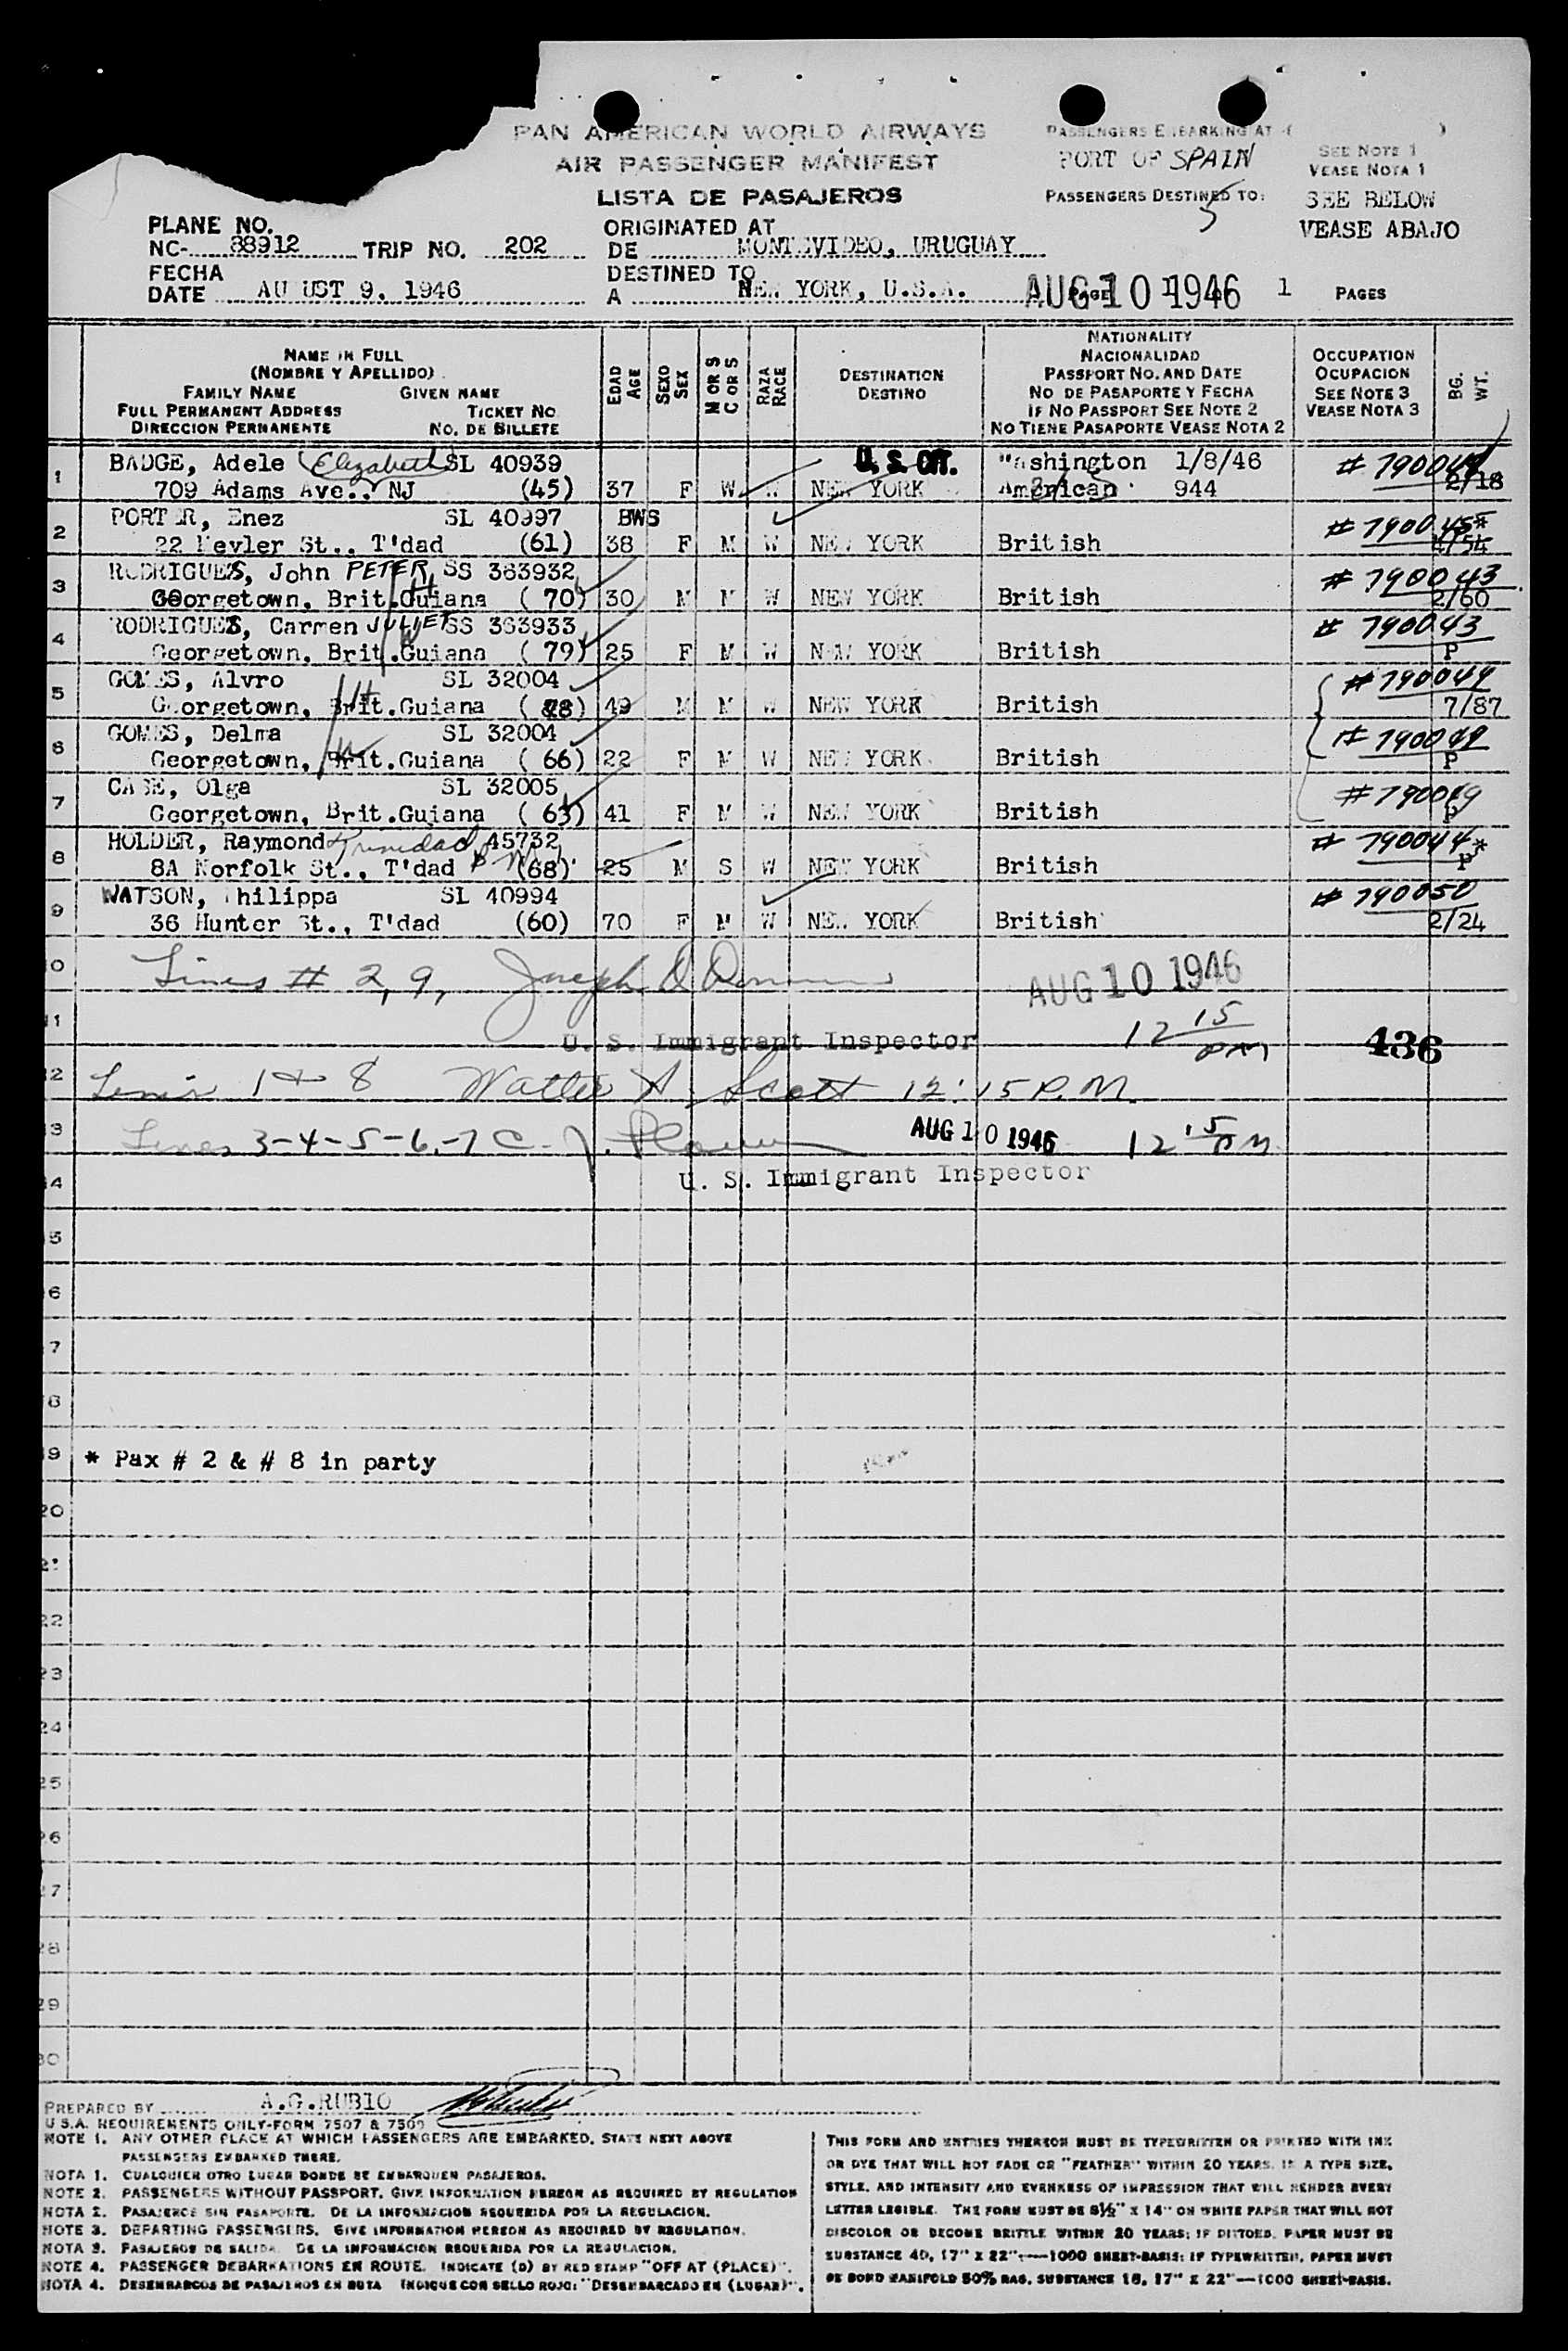 PAN AMERICAN WORLD AIRWAYS
AIR PASSENGER MANIFEST
LISTA DE PASAJEROS
PASSENGERS EMBARKING AT ( )
PORT OF SPAIN
SEE NOTE 1
VEASE NOTA 1
PASSENGERS DESTINED TO:
5
SEE BELOW
VEASE ABAJO
PLANE NO.
NC- 88912 TRIP NO. 202
ORIGINATED AT
DE MONTEVIDEO, URUGUAY
FECHA
DATE AU UST 9, 1946
DESTINED TO
A NEW YORK, U.S.A.
AUG 10 1946
PAGE 1 1 PAGES
NAME IN FULL
(NOMBRE Y APELLIDO)
FAMILY NAME GIVEN NAME
FULL PERMANENT ADDRESS TICKET NO
DIRECCION PERMANENTE NO. DE BILLETE
EDAD
AGE
SEXO
SEX
M OR S
C OR S
RAZA
RACE
DESTINATION
DESTINO
NATIONALITY
NACIONALIDAD
PASSPORT NO. AND DATE
NO DE PASAPORTE Y FECHA
IF NO PASSPORT SEE NOTE 2
NO TIENE PASAPORTE VEASE NOTA 2
OCCUPATION
OCUPACION
SEE NOTE 3
VEASE NOTA 3
BG.
WT.
1 BADGE, Adele (Elizabeth) SL 40939 U.S. CIT. Washington 1/8/46
709 Adams Ave., NJ (45) 37 F W W NEW YORK American 944 2/18
2 PORTER, Enez SL 40997 BWS # 790045*
22 Pevler St., T'dad (61) 38 F M W NEW YORK British 4/54
3 RODRIGUES, John PETER SS 363932 # 790043
Georgetown, Brit.Guiana ( 70) 30 M M W NEW YORK British 2/60
4 RODRIGUES, Carmen JULIET SS 363933 # 790043
Georgetown, Brit.Guiana ( 79) 25 F M W NEW YORK British P
5 GOMES, Alvro SL 32004 # 790049
Georgetown, Brit.Guiana 49 M M W NEW YORK British 7/87
6 GOMES, Delma SL 32004 # 790049
Georgetown, Brit.Guiana ( 66) 22 F M W NEW YORK British P
7 CASE, Olga SL 32005 # 790049
Georgetown, Brit.Guiana ( 63) 41 F M W NEW YORK British P
8 HOLDER, Raymond Trinidad 45732 # 790044*
8A Norfolk St., T'dad (68) 25 M S W NEW YORK British P
9 WATSON, Philippa SL 40994 # 790050
36 Hunter St., T'dad (60) 70 F M W NEW YORK British 2/24
10 Lines # 2, 9, Joseph AUG 10 1946
11 U. S. Immigrant Inspector 12 15 PM 436
12 Lines 1 & 8 Walter A. Scott 12:15 P.M.
13 Lines 3-4-5-6-7 C. J. AUG 10 1946 12 15 PM
14 U. S. Immigrant Inspector
5
6
7
8
9 * Pax # 2 & # 8 in party
20
22
23
24
25
26
27
28
29
30
PREPARED BY A.G.RUBIO
U S.A. REQUIREMENTS ONLY-FORM 7507 & 7509
NOTE 1. ANY OTHER PLACE AT WHICH PASSENGERS ARE EMBARKED, STATE NEXT ABOVE
PASSENGERS EMBARKED THERE.
NOTA 1. CUALQUIER OTRO LUGAR DONDE SE EMBARQUEN PASAJEROS.
NOTE 2. PASSENGERS WITHOUT PASSPORT, GIVE INFORMATION HEREON AS REQUIRED BY REGULATION
NOTA 2. PASAJEROS SIN PASAPORTE. DE LA INFORMACION REQUERIDA POR LA REGULACION.
NOTE 3. DEPARTING PASSENGERS. GIVE INFORMATION HEREON AS REQUIRED BY REGULATION.
NOTA 3. PASAJEROS DE SALIDA. DE LA INFORMACION REQUERIDA POR LA REGULACION.
NOTE 4. PASSENGER DEBARKATIONS EN ROUTE. INDICATE (D) BY RED STAMP "OFF AT (PLACE)".
NOTA 4. DESEMBARCOS DE PASAJEROS EN RUTA INDIQUE CON SELLO ROJO: "DESEMBARCADO EN (LUGAR)".
THIS FORM AND ENTRIES THEREON MUST BE TYPEWRITTEN OR PRINTED WITH INK
OR DYE THAT WILL NOT FADE OR "FEATHER" WITHIN 20 YEARS. IN A TYPE SIZE,
STYLE, AND INTENSITY AND EVENNESS OF IMPRESSION THAT WILL RENDER EVERY
LETTER LEGIBLE. THE FORM MUST BE 8½" X 14" ON WHITE PAPER THAT WILL NOT
DISCOLOR OR BECOME BRITTLE WITHIN 20 YEARS; IF DITTOED, PAPER MUST BE
SUBSTANCE 40, 17" X 22"—1000 SHEET-BASIS; IF TYPEWRITTEN, PAPER MUST
BE BOND MANIFOLD 50% RAG, SUBSTANCE 18, 17" X 22"—1000 SHEET-BASIS.